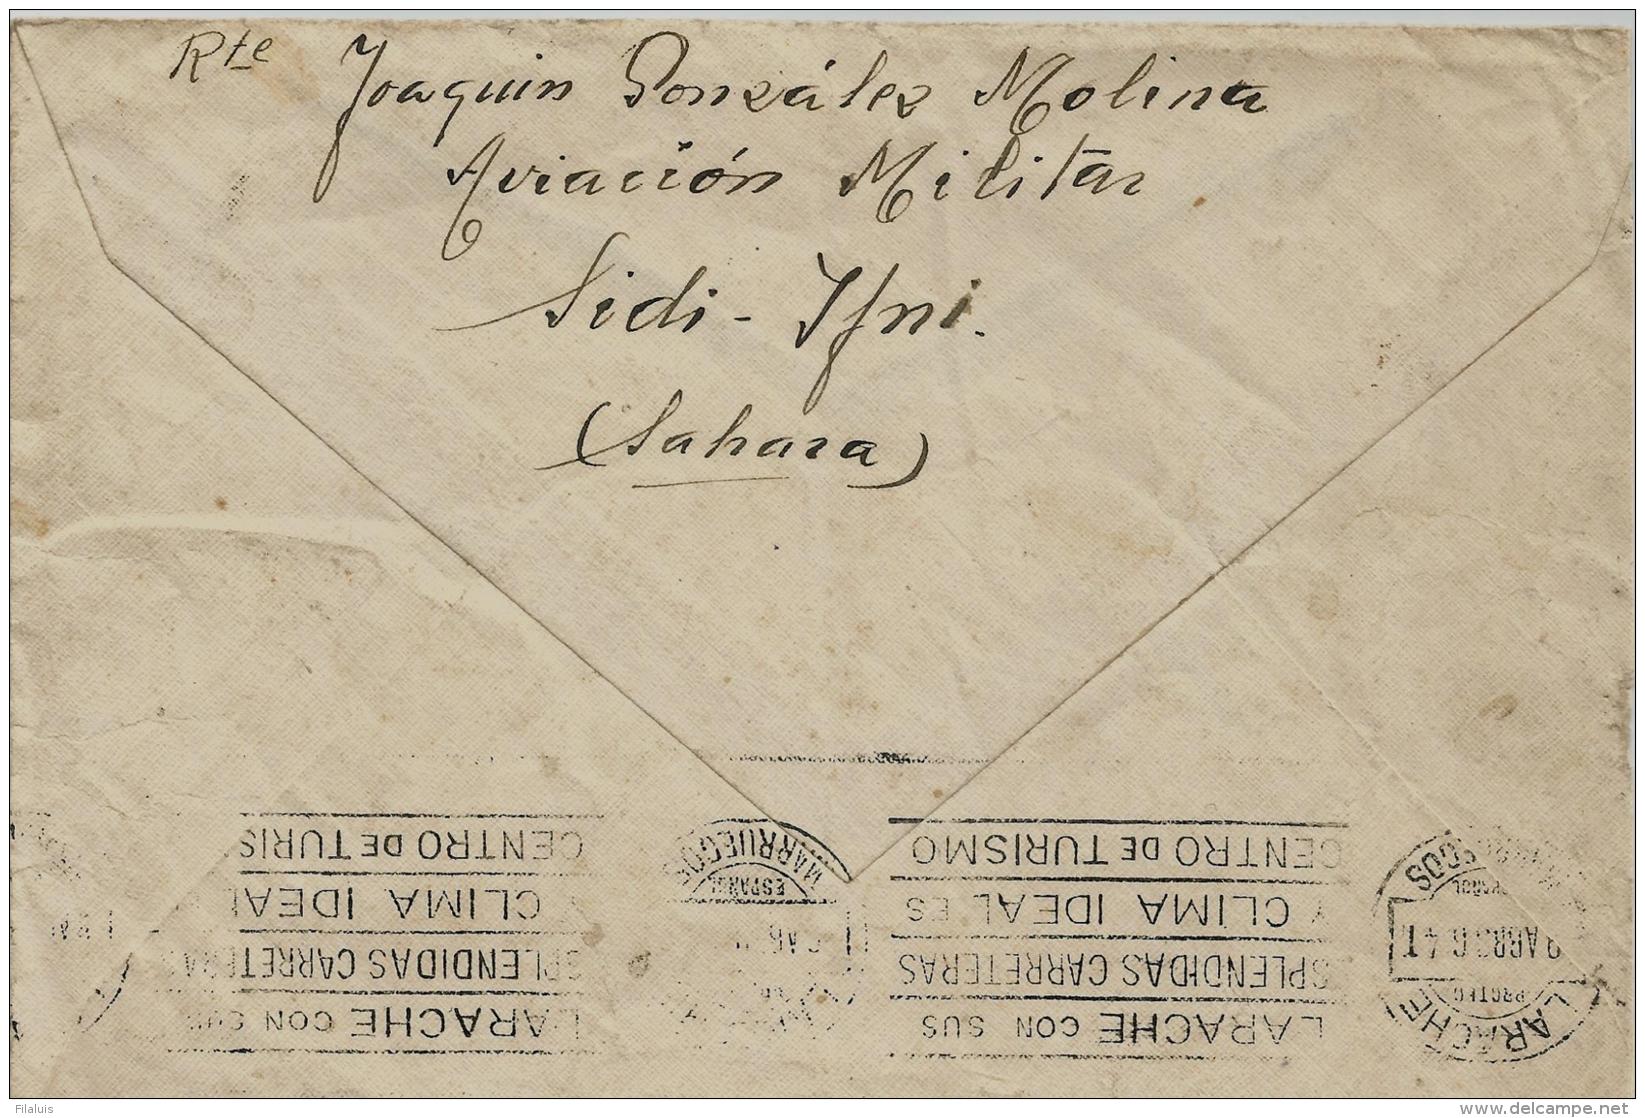 Rte Joaquin González Molina
Aviación Militar
Sidi-Ifni.
(Sahara)
LARACHE CON SUS
SPLENDIDAS CARRETERAS
Y CLIMA IDEAL
CENTRO DE TURIS
MARRUECOS
ESPAÑOL
LARACHE CON SUS
SPLENDIDAS CARRETERAS
Y CLIMA IDEAL ES
CENTRO DE TURISMO
LARACHE
Filaluis
delcampe.net